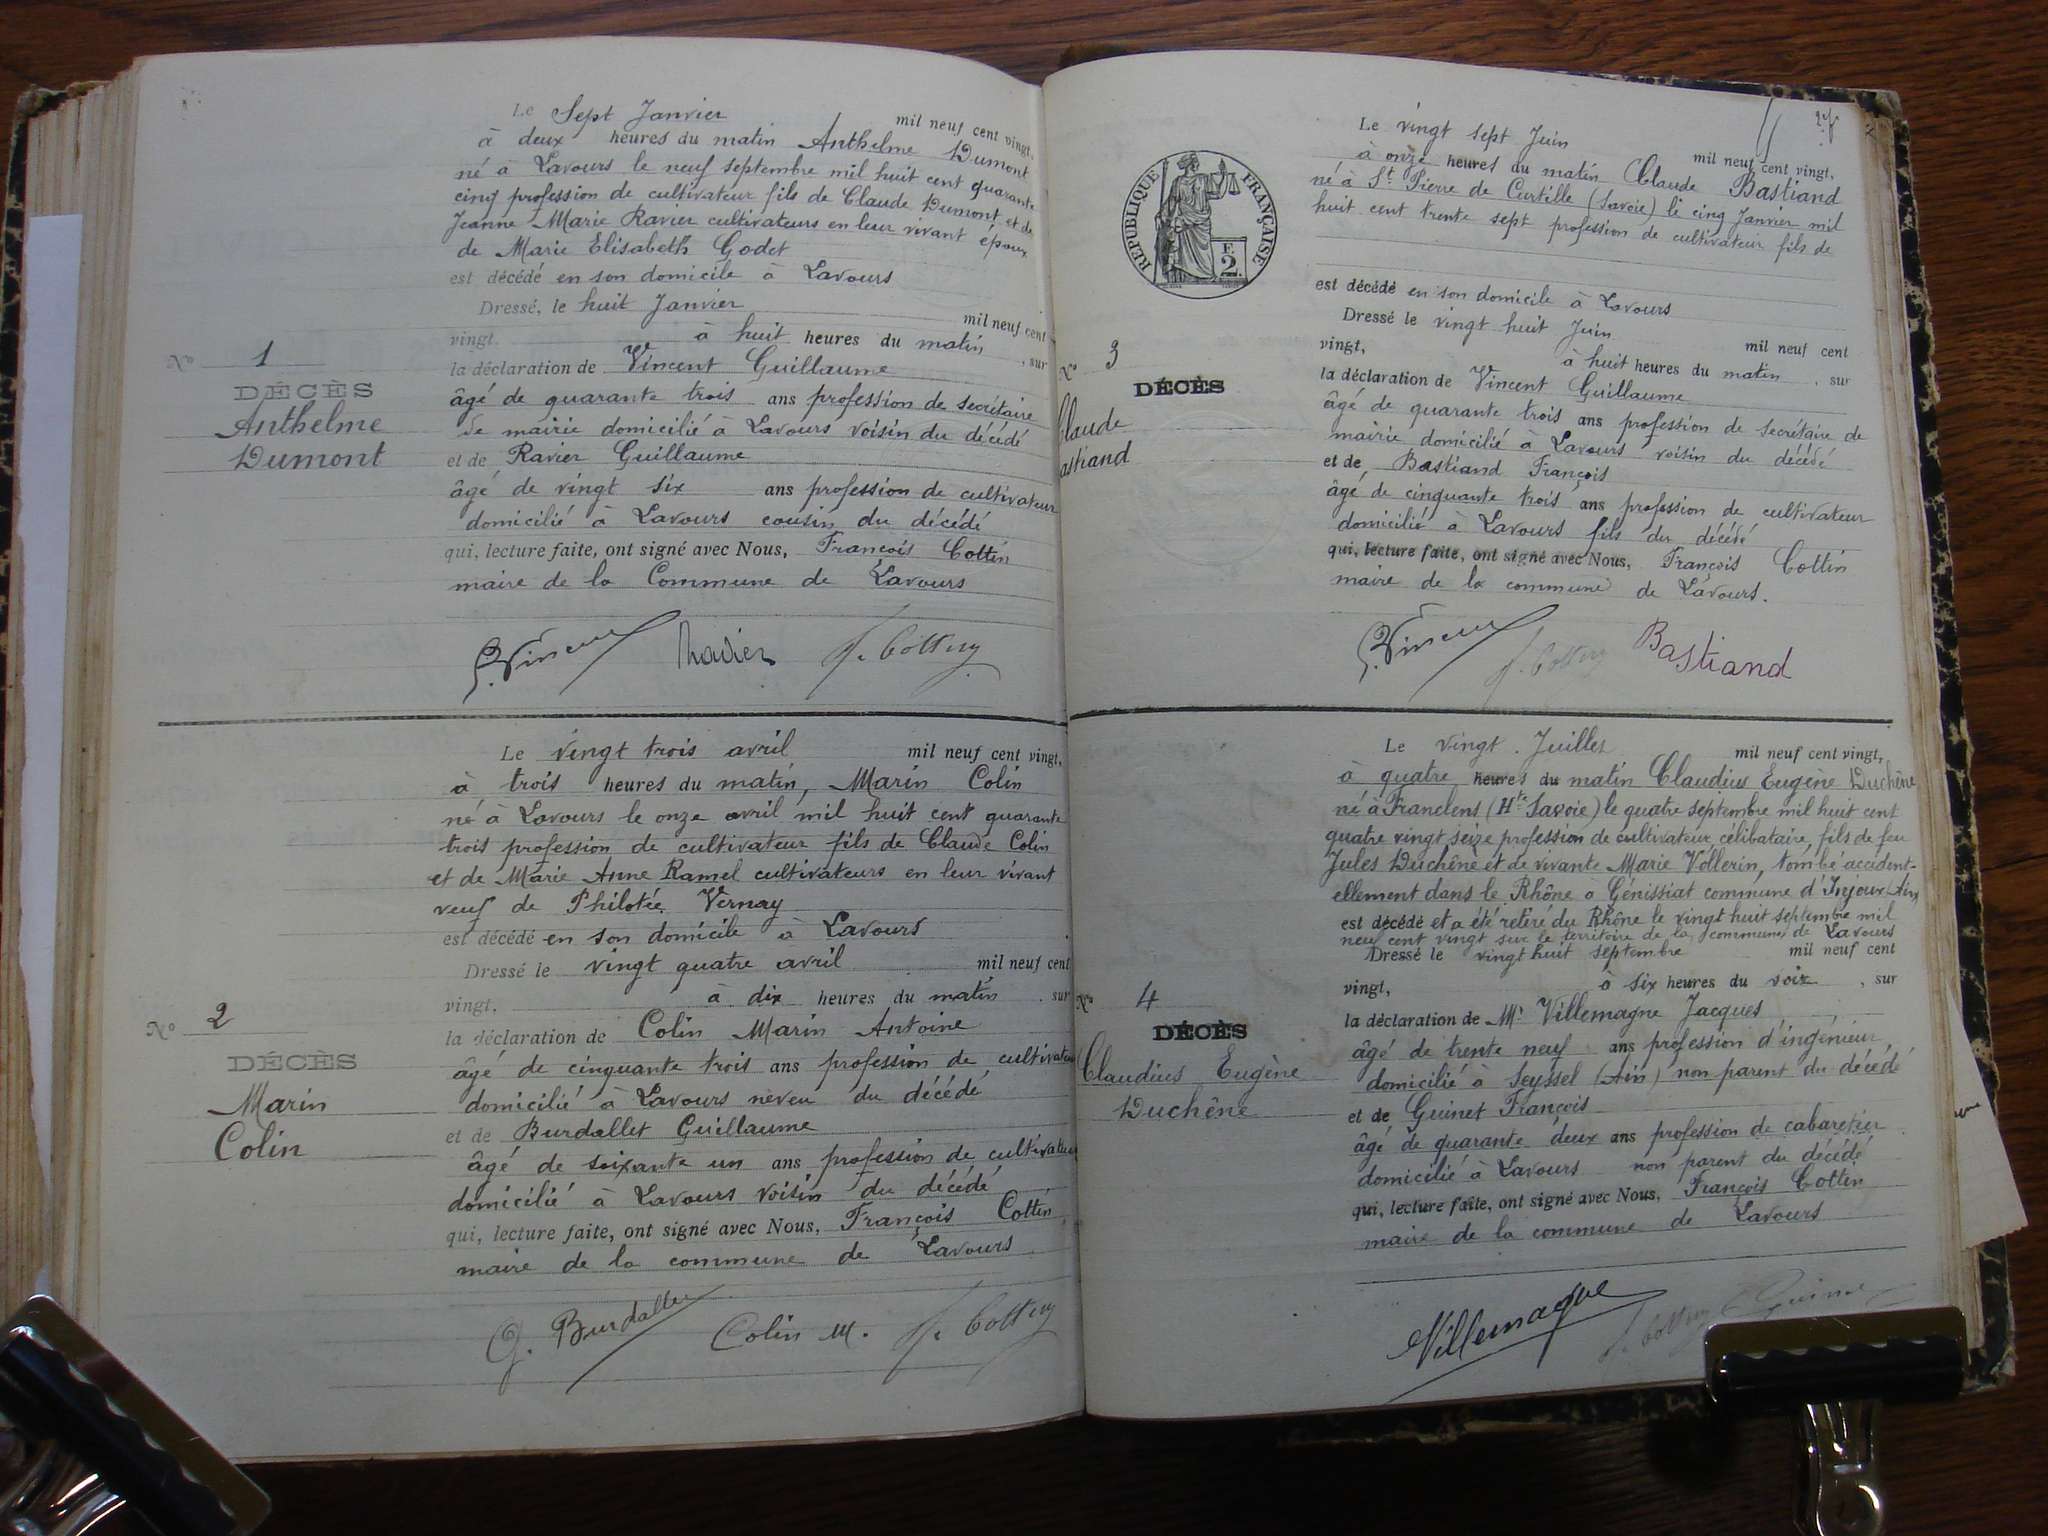 Le Sept Janvier mil neuf cent vingt,
à deux heures du matin Anthelme Dumont
né à Lavours le neuf septembre mil huit cent quarante
cinq profession de cultivateur fils de Claude Dumont et de
Jeanne Marie Ravier cultivateurs en leur vivant époux
de Marie Elisabeth Godet
est décédé en son domicile à Lavours
Dressé, le huit Janvier mil neuf cent
vingt à huit heures du matin, sur
la déclaration de Vincent Guillaume
âgé de quarante trois ans profession de secrétaire
de mairie domicilié à Lavours voisin du décédé
et de Ravier Guillaume
âgé de vingt six ans profession de cultivateur
domicilié à Lavours cousin du décédé
qui, lecture faite, ont signé avec Nous, François Cottin
maire de la Commune de Lavours
G. Vincent Ravier F. Cottin
No 1
DÉCÈS
Anthelme
Dumont
Le vingt trois avril mil neuf cent vingt,
à trois heures du matin, Marin Colin
né à Lavours le onze avril mil huit cent quarante
trois profession de cultivateur fils de Claude Colin
et de Marie Anne Ramel cultivateurs en leur vivant
veuf de Philotée Vernay
est décédé en son domicile à Lavours
Dressé le vingt quatre avril mil neuf cent
vingt, à dix heures du matin, sur
la déclaration de Colin Marin Antoine
âgé de cinquante trois ans profession de cultivateur
domicilié à Lavours neveu du décédé
et de Burdallet Guillaume
âgé de soixante un ans profession de cultivateur
domicilié à Lavours voisin du décédé
qui, lecture faite, ont signé avec Nous, François Cottin
maire de la commune de Lavours
G. Burdallet Colin M. F. Cottin
No 2
DÉCÈS
Marin
Colin
REPUBLIQUE FRANÇAISE
F.
2.
Le vingt sept Juin mil neuf cent vingt,
à onze heures du matin Claude Bastiand
né à St Pierre de Curtille (Savoie) le cinq Janvier mil
huit cent trente sept profession de cultivateur fils de
est décédé en son domicile à Lavours
Dressé le vingt huit Juin mil neuf cent
vingt, à huit heures du matin, sur
la déclaration de Vincent Guillaume
âgé de quarante trois ans profession de secrétaire de
mairie domicilié à Lavours voisin du décédé
et de Bastiand François
âgé de cinquante trois ans profession de cultivateur
domicilié à Lavours fils du décédé
qui, lecture faite, ont signé avec Nous, François Cottin
maire de la commune de Lavours.
G. Vincent F. Cottin Bastiand
No 3
DÉCÈS
Claude
Bastiand
Le vingt Juillet mil neuf cent vingt,
à quatre heures du matin Claudius Eugène Duchêne
né à Franclens (Hte Savoie) le quatre septembre mil huit cent
quatre vingt seize profession de cultivateur célibataire, fils de feu
Jules Duchêne et de vivante Marie Vollerin, tombé accident-
ellement dans le Rhône à Génissiat commune d'Injoux (Ain)
est décédé et a été retiré du Rhône le vingt huit septembre mil
neuf cent vingt sur le territoire de la commune de Lavours
Dressé le vingt huit septembre mil neuf cent
vingt, à six heures du soir, sur
la déclaration de Mr Villemagne Jacques
âgé de trente neuf ans profession d'ingénieur
domicilié à Seyssel (Ain) non parent du décédé
et de Guinet François
âgé de quarante deux ans profession de cabaretier
domicilié à Lavours non parent du décédé
qui, lecture faite, ont signé avec Nous, François Cottin
maire de la commune de Lavours
Villemagne F. Cottin Guinet
No 4
DÉCÈS
Claudius Eugène
Duchêne